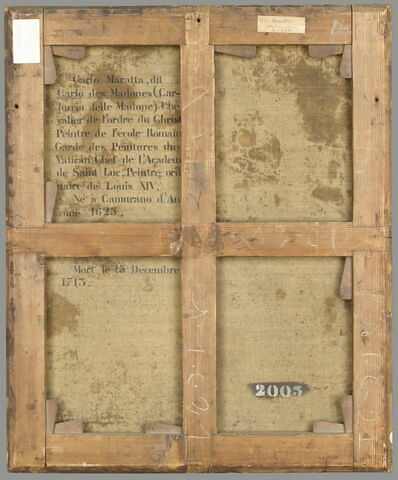 Carlo Maratta, dit
Carlo des Madones (Car-
luccio delle Madone) Che-
valier de l'ordre du Christ
Peintre de l'école Romain
Garde des Peintures du
Vatican, Chef de l'Academ
de Saint Luc, Peintre ord
naire de Louis XIV.
Né à Camurano d'An
cone 1625,
Mort le 15 Décembre
1713.
2005